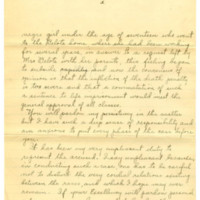 negro girl under the age of seventeen who went
to the Belote home where she had been working
for several years, in answer to a request left by
Mrs Belote with her parents, this feeling began
to and now the concensus of
opinion is that the infliction of the death penalty
is too severe and that a commutation of such
a sentence to life imprisonment would meet the
general approval of all classes.
You will pardon my persistency in the matter
but I have such a deep sense of responsibility and
am anxious to put every phase of the case before
you.
It has been my very unpleasant duty to
represent the accused, I say unpleasant because
in conducting such a case one has to be careful
not to disturb the very cordial relations existing
between the races and which I hope may ever
remain. If your Excellency will pardon personal